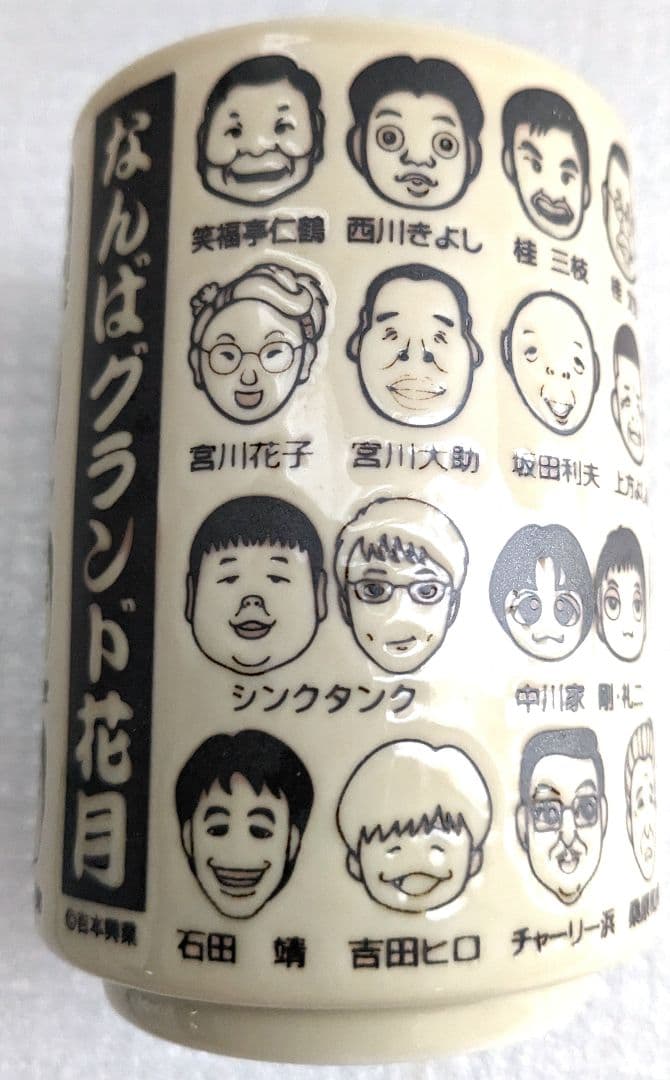 なんばグランド花月
©吉本興業
笑福亭仁鶴 西川きよし 桂 三枝 桂
宮川花子 宮川大助 坂田利夫 上方よし
シンクタンク 中川家 剛・礼二
石田 靖 吉田ヒロ チャーリー浜